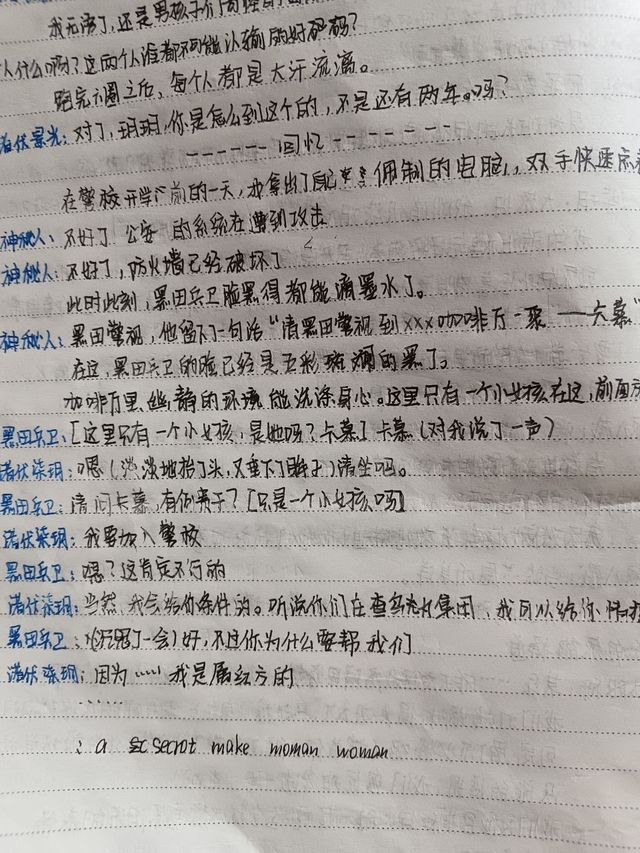 我无语了,还是男孩子们
人什么啊?这两个人谁都不可能认输的好吗?
跑完圈之后,每个人都是大汗流漓。
诸伏景光:对了,玥玥,你是怎么到这个的,不是还有两年。吗?
------回忆--------
在警校开学前的一天,我拿出了自己 佣制的电脑,双手快速
神秘人:不好了 公安 的系统在遭到攻击
神秘人:不好了,防火墙已经破坏了
此时此刻,黑田兵卫脸黑得都能滴墨水了。
神秘人:黑田警视,他留下一句话“请黑田警视到xxx咖啡厅一聚 ——卡慕
在这,黑田兵卫的脸已经是五彩斑斓的黑了。
咖啡厅里幽静的环境能洗涤身心。这里只有一个小女孩在这,前面
黑田兵卫:[这里只有一个小女孩,是她吗?卡慕]卡慕(对我说了一声)
诸伏柒玥:嗯(淡淡地抬了头,又垂下了眸子)请坐吗。
黑田兵卫:请问卡慕,有何贵干?[只是一个小女孩吗]
诸伏柒玥:我要加入警校
黑田兵卫:嗯?这肯定不行的
诸伏柒玥:当然,我会给你条件的。听说你们在查乌丸集团,我可以给你情报
黑田兵卫:(沉思了一会)好,不过你为什么要帮我们
诸伏柒玥:因为……我是属红方的
……
: a secret make woman woman